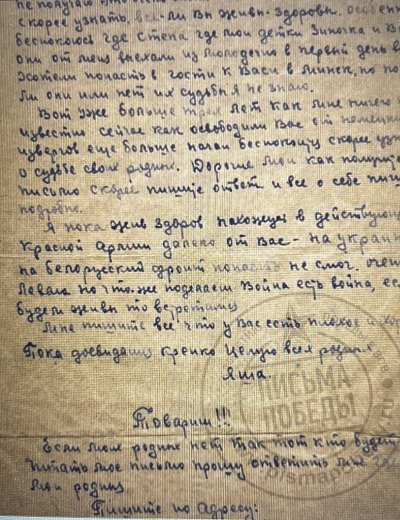 не получаю
скорее узнать, все-ли вы живы-здоровы. особен
беспокоюсь где Степа где мои детки Зиночка и В
они от меня выехали из Молодечно в первый день в
хотели попасть в гости к Васи в Минск, но по
ли они или нет их судьбы я не знаю.
Вот уже больше трех лет как мне ничего н
известно сейчас как освободили Вас от немецк
извергов еще больше начал беспокоится скорее узн
о судьбе своих родных. Дорогие мои как получите
письмо скорее пишите ответ и все о себе пиш
подробно.
Я пока жив здоров нахожусь в действующ
Красной армии далеко от Вас - на украи
на белорусский фронт попасть не смог. очен
но что-же поделаеш война есть война, ес
будем живы то встретимся
Мне пишите все что у Вас есть плохое и хор
Пока досвидания крепко целую всех родных
Яша
ПИСЬМА
ПОБЕДЫ
Товарищ!!!
Если моих родных нет так тот кто будет
читать мое письмо прошу ответить мне где
мои родные
Пишите по адресу: